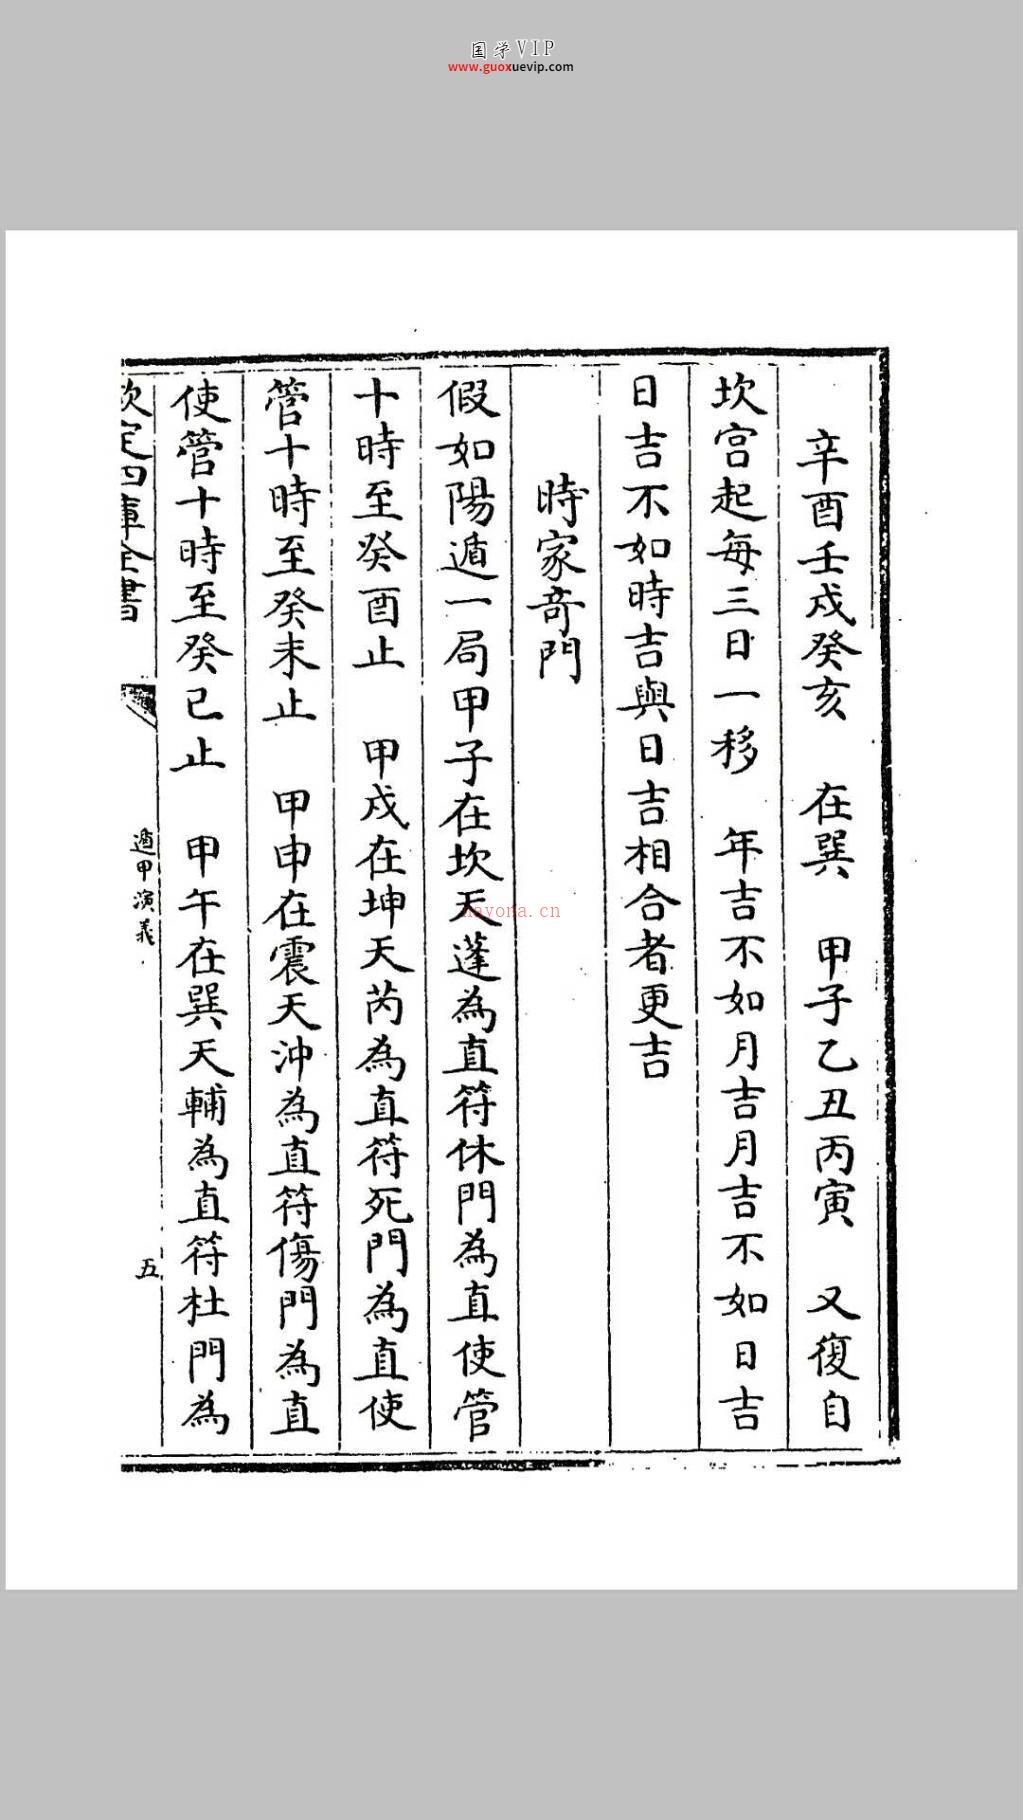 国学VIP
www.guoxuevip.com
辛酉壬戌癸亥　在巽　甲子乙丑丙寅　又復自
坎宫起每三日一移　年吉不如月吉月吉不如日吉
日吉不如時吉與日吉相合者更吉
時家奇門
假如陽遁一局甲子在坎天蓬為直符休門為直使管
十時至癸酉止　甲戌在坤天芮為直符死門為直使
管十時至癸未止　甲申在震天沖為直符傷門為直
使管十時至癸已止　甲午在巽天輔為直符杜門為
欽定四庫全書
遁甲演義
五
nayona.cn